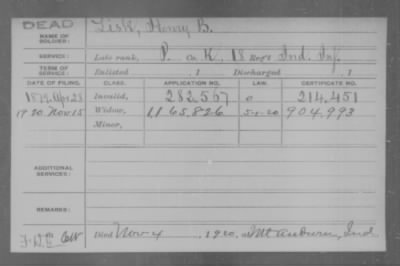 DEAD
NAME OF SOLDIER: Lisk, Henry B.
SERVICE: Late rank, P. Co. K, 18 Reg't Ind. Inf.
TERM OF SERVICE: Enlisted , 1 Discharged , 1
DATE OF FILING. CLASS. APPLICATION NO. LAW. CERTIFICATE NO.
1879 Apr 28 Invalid, 282,567 214,451
1920 Nov. 15 Widow, 1165,826 5-1-20 904,993
Minor,
ADDITIONAL SERVICES:
REMARKS:
Died Nov 4, 1920, at Mt Auburn, Ind.